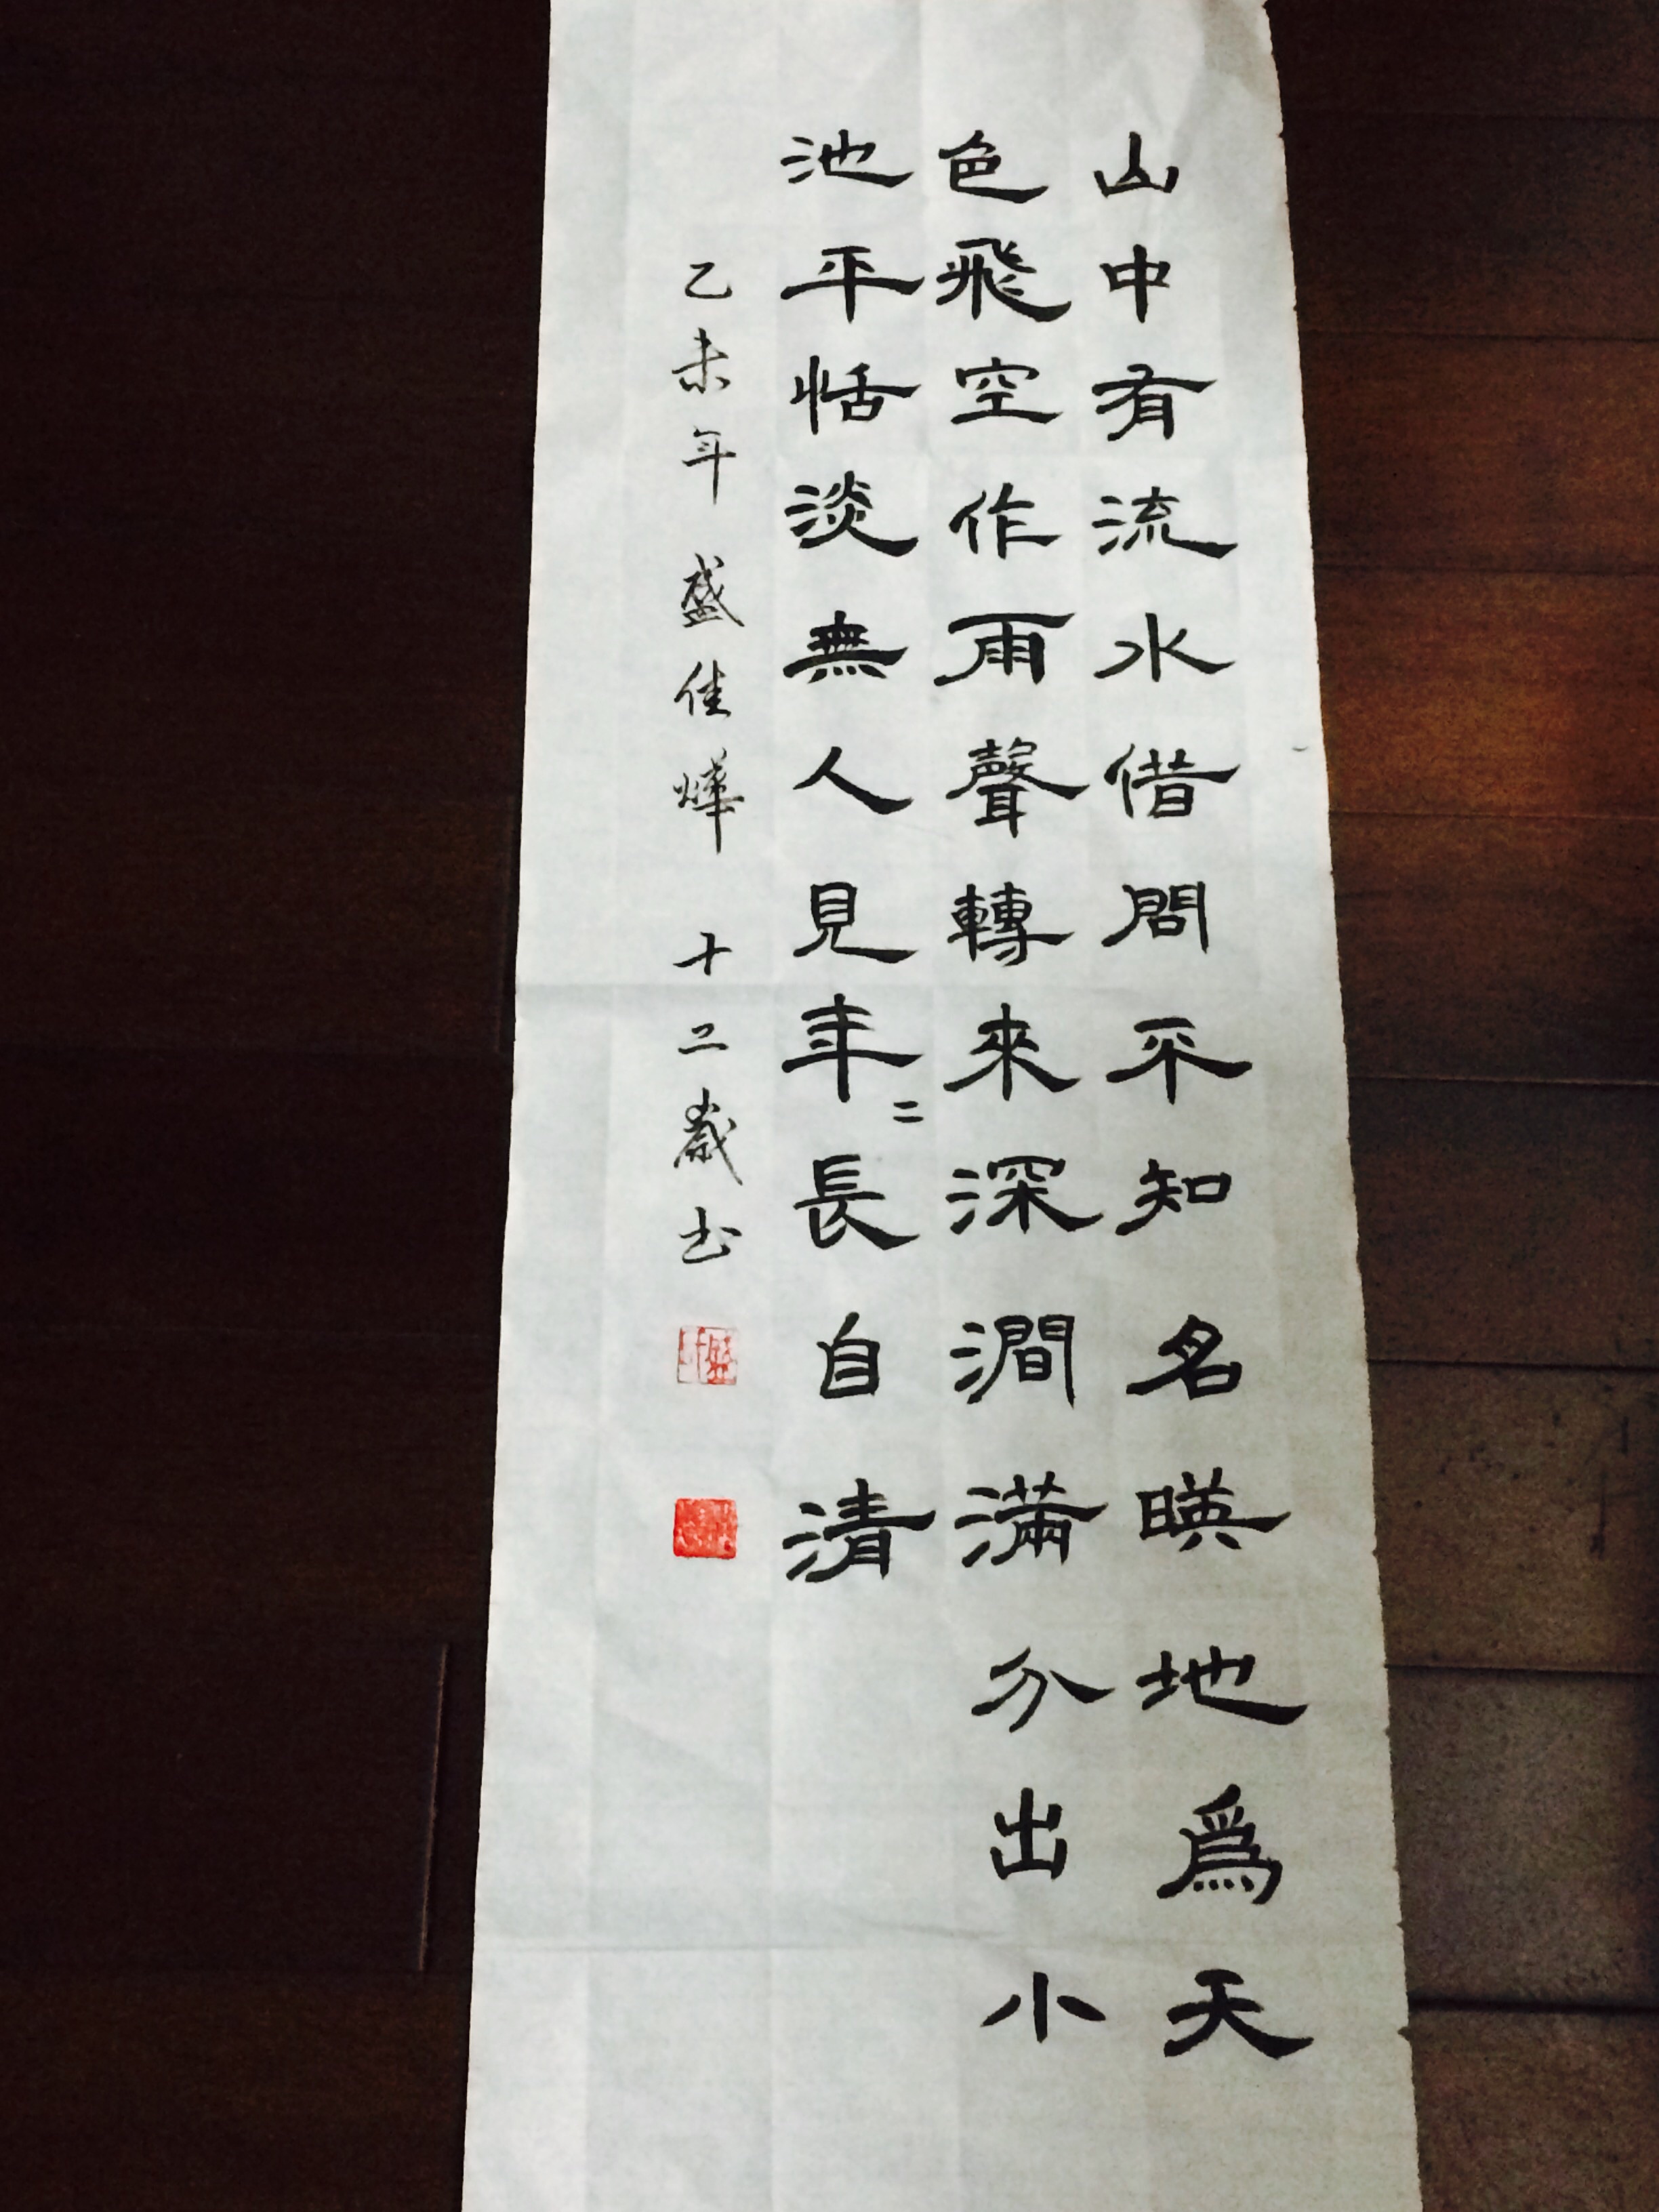 山中有流水借問不知名暎地爲天
色飛空作雨聲轉來深澗滿分出小
池平恬淡無人見年〻長自清
乙未年 盛佳燁 十二歲书